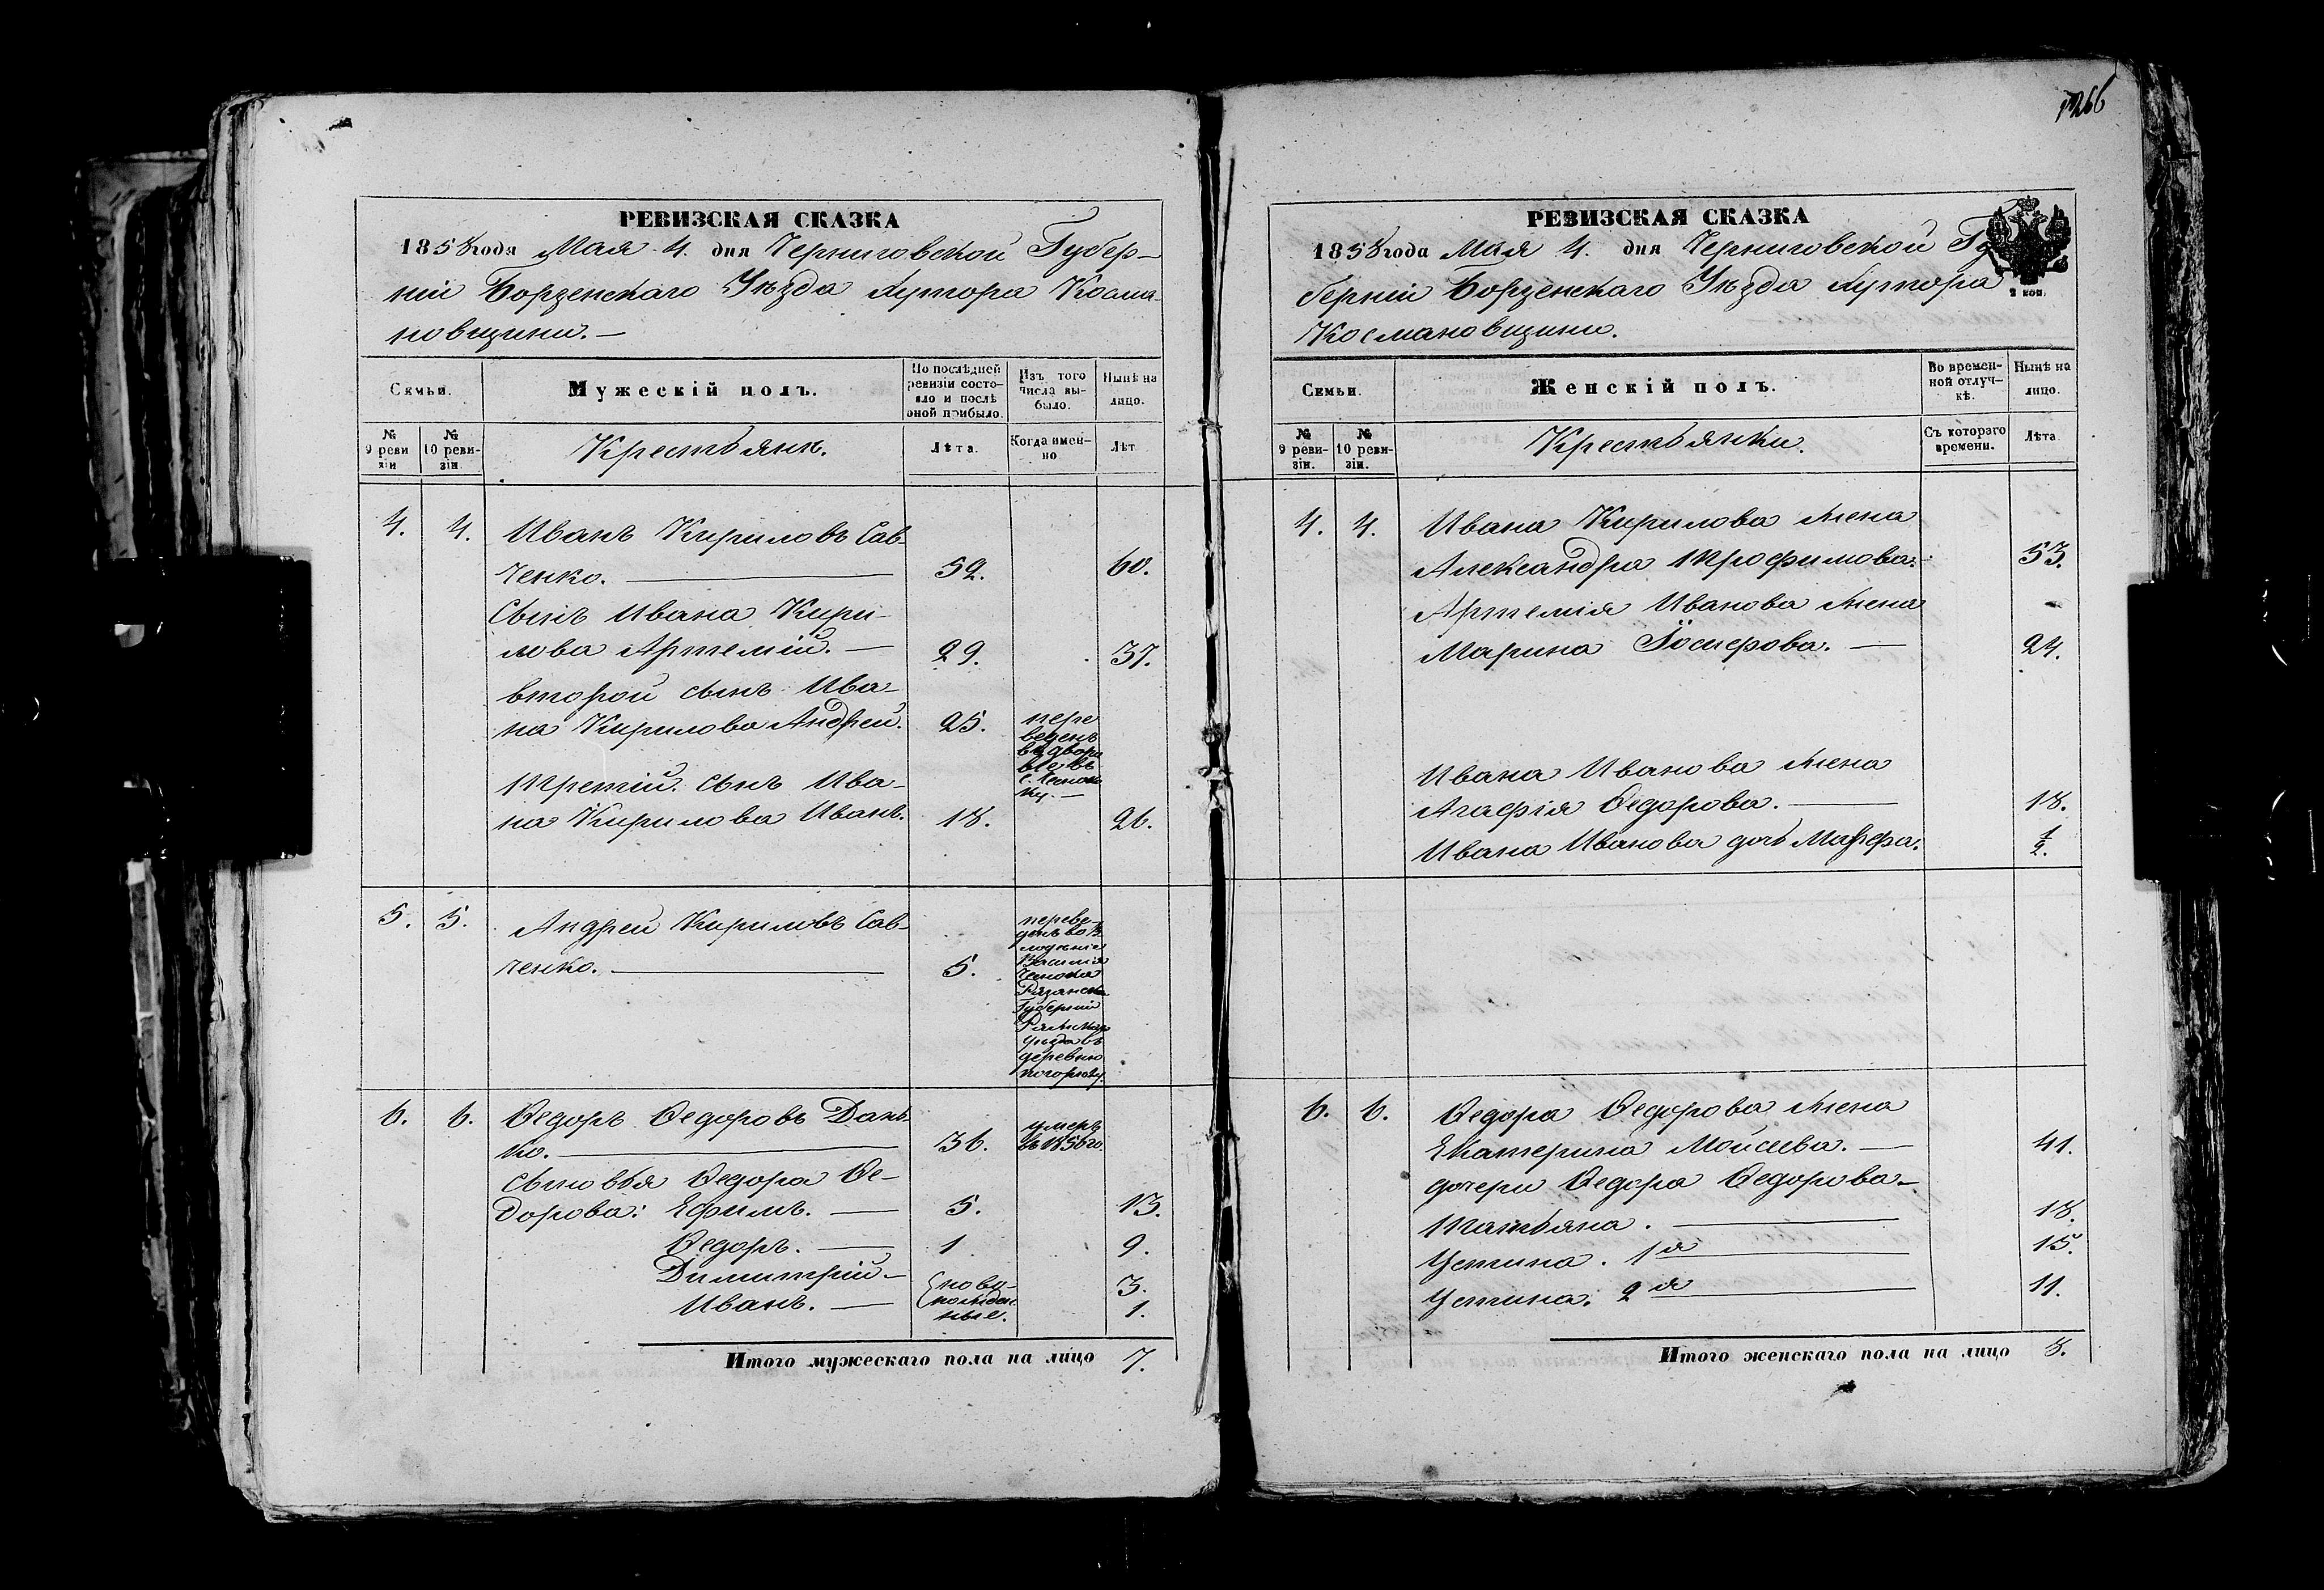 1266
РЕВИЗСКАЯ СКАЗКА
1858 года Мая 4. дня Черниговской Губер-
ніи Борзенскаго Уѣзда Хутора Косма-
новщини.—
Семьи.
Мужескій полъ.
По послѣдней ревизіи состояло и послѣ оной прибыло.
Изъ того числа выбыло.
Нынѣ на лицо.
№ 9 ревизіи
№ 10 ревизіи.
Крестьянъ.
Лѣта.
Когда именно
Лѣт
4. 4. Иванъ Кириловъ Сав-
ченко. — 52. 60.
Сынъ Ивана Кири-
лова Артемій. — 29. 37.
второй сынъ Ива-
на Кирилова Андрей. 25.
пере
веденъ
Третій сынъ Ива-
на Кирилова Иванъ. 18. 26.
5. 5. Андрей Кириловъ Сав-
ченко. — 5.
переве-
денъ во В-
лодѣніе
Василія
Рязанской
Губерніи
уѣзда въ
деревню
6. 6. Ѳедоръ Ѳедоровъ Дань-
ко. — 36.
умеръ
въ 1856 го.
сыновья Ѳедора Ѳе-
дорова: Ефимъ. — 5. 13.
Ѳедоръ. — 1 9.
Димитрій — 3.
Иванъ. — 1.
новорожденные.
Итого мужескаго пола на лицо 7.
РЕВИЗСКАЯ СКАЗКА
1858 года Мая 4. дня Черниговской Гу
берніи Борзенскаго Уѣзда Хутора
Космановщини.
2 коп.
Семьи.
Женскій полъ.
Во временной отлучкѣ.
Нынѣ на лицо.
№ 9 ревизіи.
№ 10 ревизіи.
Крестьянки.
Съ котораго времени.
Лѣта
4. 4. Ивана Кирилова жена
Александра Трофимова. 53.
Артемія Иванова жена
Марина — 24.
Ивана Иванова жена
Агафія Ѳедорова. — 18.
Ивана Иванова дочь 1/2.
6. 6. Ѳедора Ѳедорова жена
Екатерина Мойсеева. — 41.
дочери Ѳедора Ѳедорова-
Татьяна. — 18.
Устина. 1я 15.
Устина. 2я 11.
Итого женскаго пола на лицо 8.